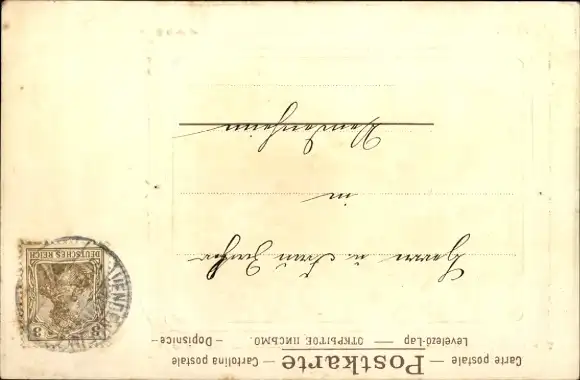 Carte postale — Postkarte — Cartolina postale
Levelező-Lap — ОТКРЫТОЕ ПИСЬМО. — Dopisnice —
Herrn u. Frau
in
Vendenheim
DEUTSCHES REICH
3 3
VENDE